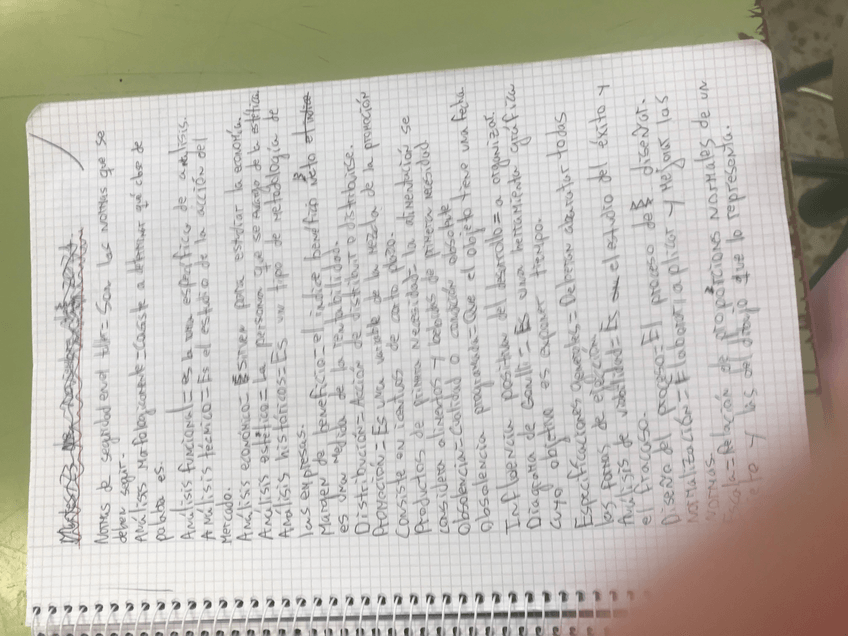 Normas de seguridad en el taller= Son las normas que se
deben seguir.
Análisis Morfologicamente=Consiste a determinar qué clase de
palabra es.
Análisis funcional= es la una específica de análisis.
Análisis técnico= Es el estudio de la acción del
Mercado.
Análisis económico= Sirven para estudiar la economía.
Análisis estético= La persona que se encarga de la estética
Análisis históricos= Es un tipo de metodología de
las empresas.
Margen de beneficio= el indice beneficio neto
es una medida de la rentabilidad.
Distribución= Acción de distribuir o distribuirse.
Promoción= Es una variable de la mezcla de la promoción
Consiste en de corto plazo.
Productos de primera necesidad= la alimentación se
considera alimentos y bebidas de primera necesidad
Obsolencia= Cualidad o condición obsoleta
Obsolencia programada= Que el objeto tiene una fecha
Influencia positiva del desarrollo= a organizar.
Diagrama de Gantt= Es una herramienta gráfica
cuyo objetivo es exponer tiempo.
Especificaciones generales= Deberan todas
las fases de ejecución
Análisis de viabilidad= Es el estudio del éxito y
el fracaso.
Diseño del proceso= El proceso de diseñar.
Normalización= Elaborar, aplicar y mejorar las
Normas.
Escala= Relación de proporciones normales de un
y las del dibujo que lo representa.